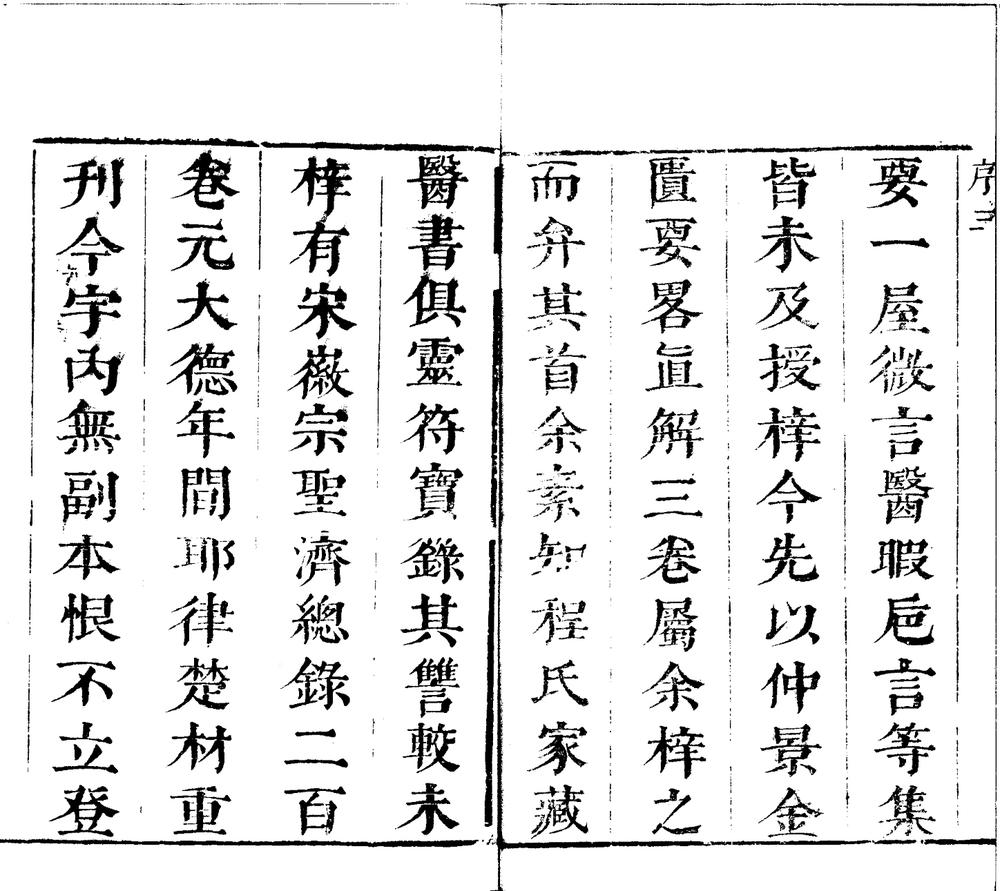 序三
要一屋微言醫暇巵言等集
皆未及授梓今先以仲景金
匱要畧直解三卷屬余梓之
而弁其首余素知程氏家藏
醫書俱靈符寶錄其讐較未
梓有宋徽宗聖濟總錄二百
卷元大德年間耶律楚材重
刊今宇內無副本恨不立登